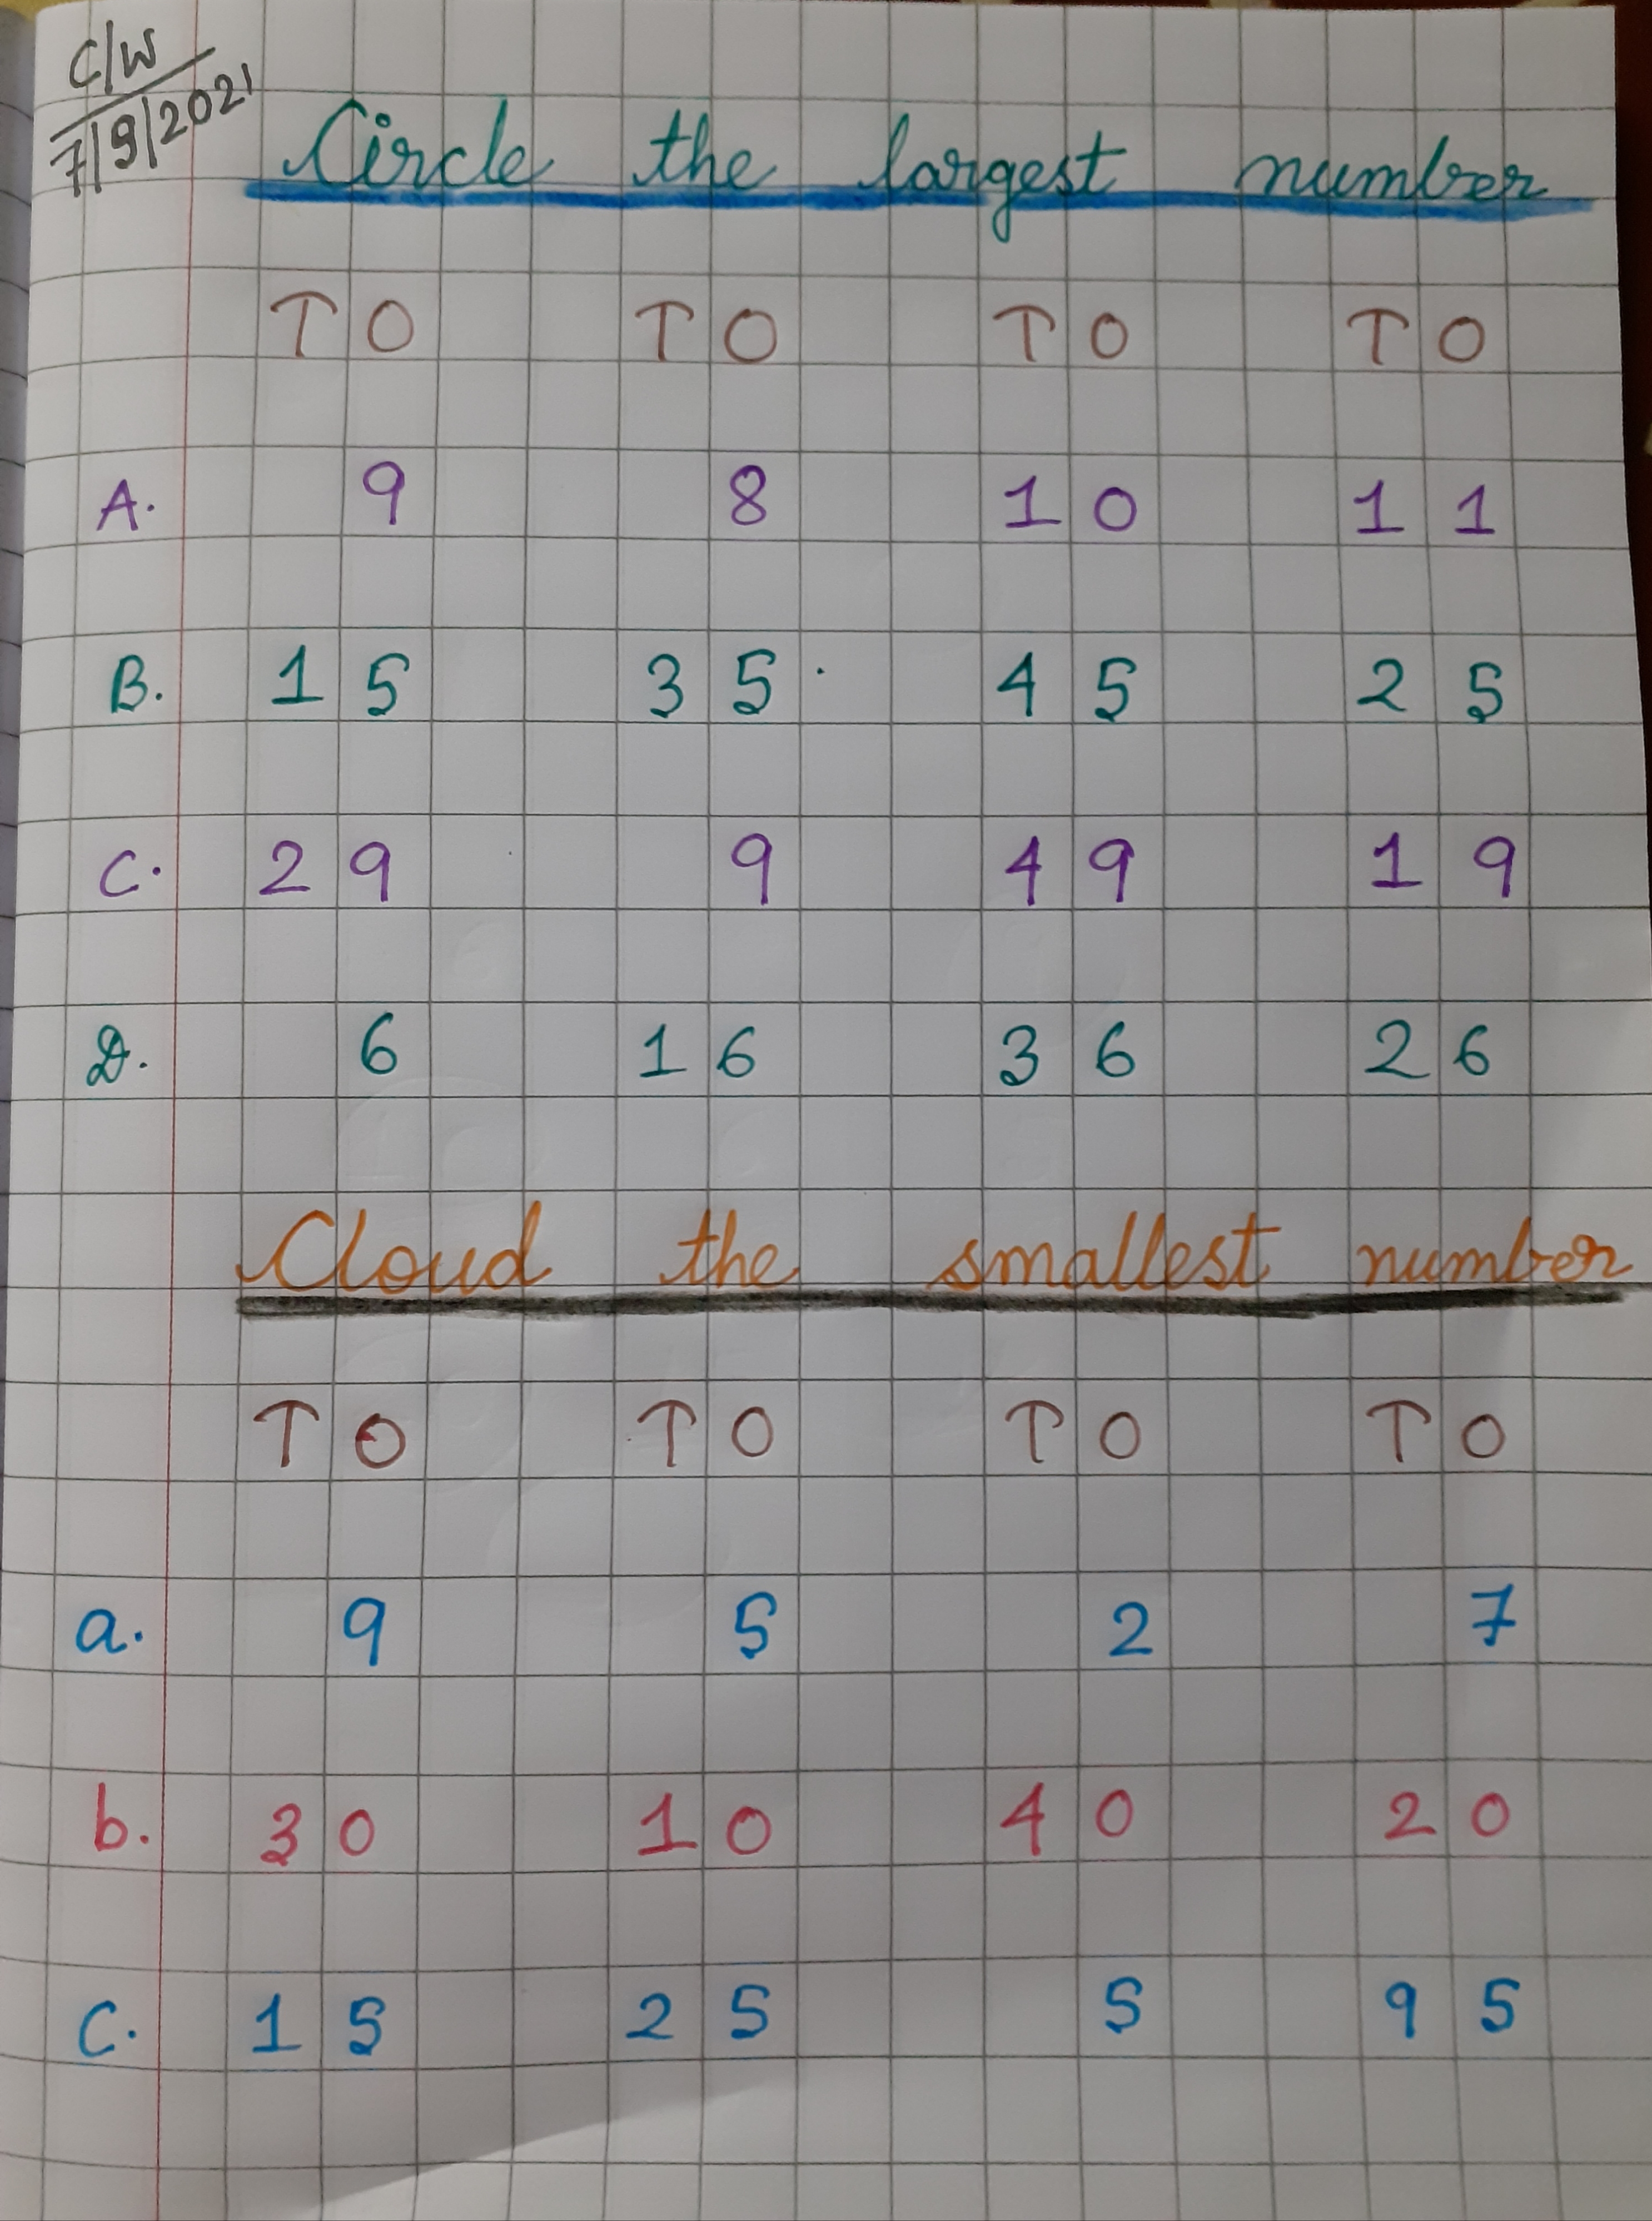 C/W
7/9/2021
Circle the largest number
T O T O T O T O
A. 9 8 10 11
B. 15 35 45 25
C. 29 9 49 19
D. 6 16 36 26
Cloud the smallest number
T O T O T O T O
a. 9 5 2 7
b. 30 10 40 20
C. 15 25 5 95